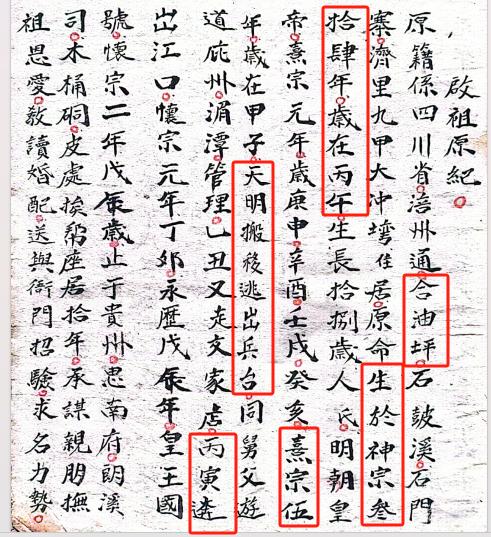 啟祖原紀
原籍係四川省涪州通合油坪石鼓溪石門
寨濟里九甲大沖塆住居原命生於神宗叁
拾肆年歲在丙午生長拾捌歲人氏明朝皇
帝熹宗元年歲庚申辛酉壬戌癸亥熹宗伍
年歲在甲子天明搬移逃出兵台同舅父遊
道庇州湄潭管理乙丑又走文家店丙寅遴
岀江口懷宗元年丁卯永歷戊辰年皇王國
號懷宗二年戊辰歲止于貴州思南府朗溪
司木桶硐皮處挨幫座居拾年承謀親朋撫
祖思愛敎讀婚配送與衙門招驗求名力勢